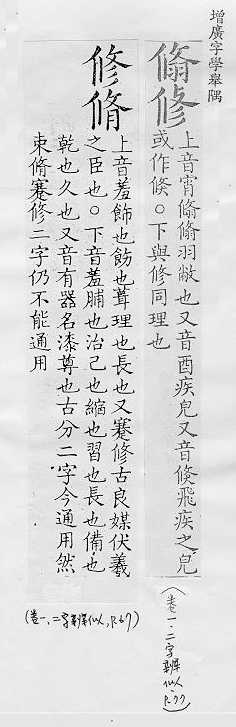 增廣字學舉隅
翛俢
上音宵翛翛羽敝也又音酉疾皃又音倐飛疾之皃
或作倐○下與修同理也
(卷一、二字辨似、P.77)
修脩
上音羞飾也飭也葺理也長也又蹇修古良媒伏羲
之臣也○下音羞脯也治己也縮也習也長也備也
乾也久也又音有器名漆尊也古分二字今通用然
束脩蹇修二字仍不能通用
(卷一、二字辨似、P.67)